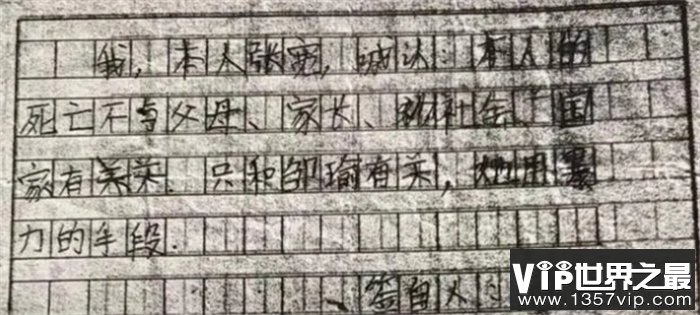 我，本人张宽，诚认：本人的
死亡不与父母、家长、社会、国
家有关，只和邹瑜有关，她用暴
力的手段．
签自人
VIP世界之最
www.1357vip.com